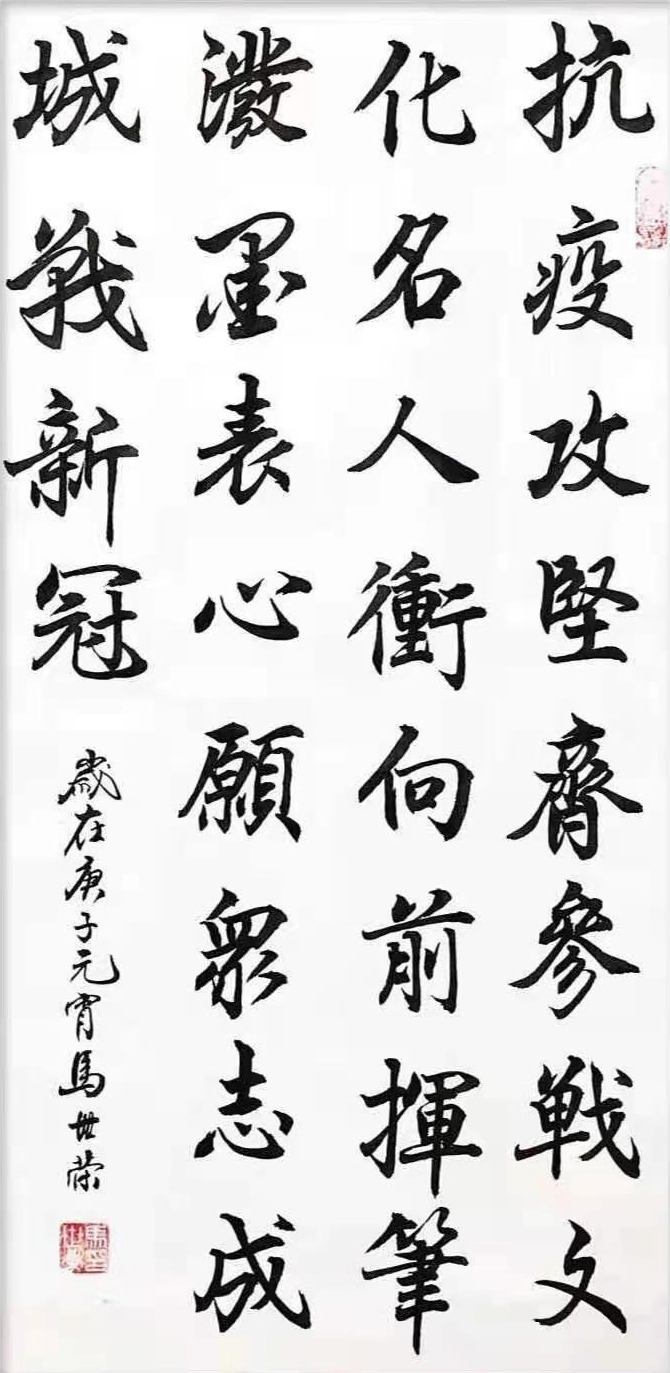 抗疫攻堅齊參戰文
化名人衝向前揮筆
潑墨表心願眾志成
城戰新冠
歲在庚子元宵馬世榮